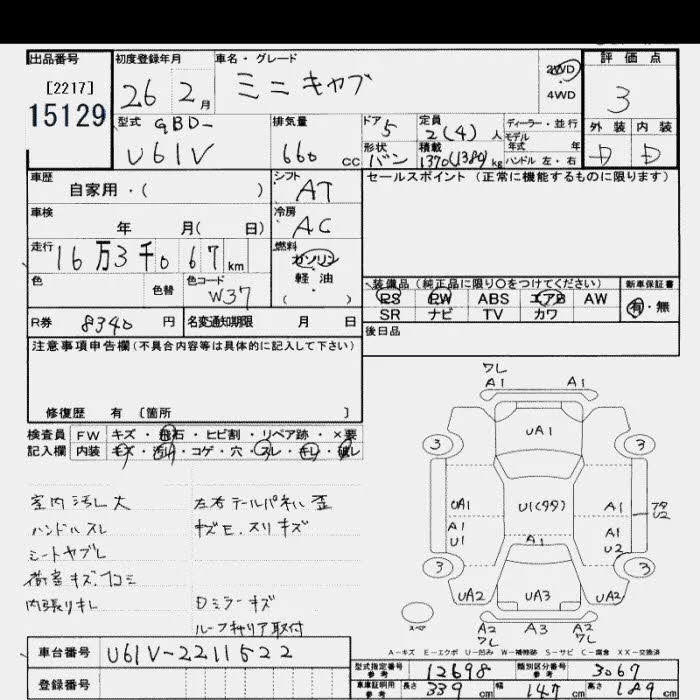 出品番号 初度登録年月 車名・グレード 評価点
[2217] 26年 2月 ミニキャブ 2WD 4WD 3
15129
型式 GBD-U61V 排気量 660 CC ドア 5 形状 バン 定員 2(4)人 積載 1370(1380)kg ディーラー・並行 モデル年式 年 ハンドル 左・右 外装 D 内装 D
車歴 自家用・( ) シフト AT セールスポイント(正常に機能するものに限ります)
車検 年 月( 日) 冷房 AC
走行 16万3千067km 燃料 ガソリン 軽油 ( )
色 色替 色コード W37 装備品(純正品に限り○をつけてください) 新車保証書
PS PW ABS エアB AW 有・無
R券 8340円 名変通知期限 月 日 SR ナビ TV カワ
注意事項申告欄(不具合内容等は具体的に記入して下さい) 後日品
修復歴 有 〔箇所 〕
検査員 FW キズ・飛石・ヒビ割・リペア跡・×要
記入欄 内装 キズ・汚れ・コゲ・穴・スレ・キレ・破レ
室内汚レ大 左右テールパネル歪
ハンドルスレ キズE.スリキズ
シートヤブレ
荷室キズ.凹コミ
内張りキレ Dミラーキズ
ルーフキャリア取付
ワレ
A1 A1
UA1
3 3
UA1 U1(99) A1 フタ U2
A1 U1 A1 A1 U2
3 3
UA2 UA3 UA2
スペア A2 ワレ A3 A2 ワレ
A-キズ E-エクボ U-凹み W-補修跡 S-サビ C-腐食 XX-交換済
車台番号 U61V-2211522
登録番号
型式指定番号 参考 12698 類別区分番号 参考 3067
車庫証明用 参考 長さ 339cm 幅 147cm 高さ 189cm